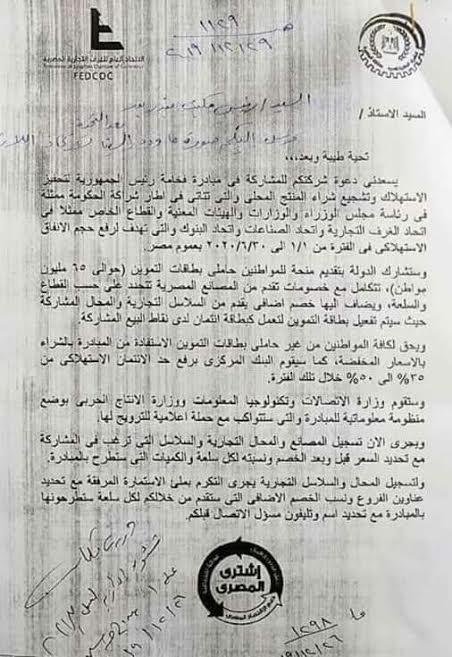 هـ ١١٤٩
٢٠١٩/١٢/٢٩
الاتحاد العام للغرف التجارية المصرية
Federation of Egyptian Chambers of Commerce
FEDCOC
السيد /
بعد التحية
السيد الاستاذ /
تحية طيبة وبعد،،،
يسعدنى دعوة شركتكم للمشاركة فى مبادرة فخامة رئيس الجمهورية لتحفيز
الاستهلاك وتشجيع شراء المنتج المحلى والتى تتاتى فى اطار شراكة الحكومة ممثلة
فى رئاسة مجلس الوزراء والوزارات والهيئات المعنية والقطاع الخاص ممثلا فى
اتحاد الغرف التجارية واتحاد الصناعات واتحاد البنوك والتى تهدف لرفع حجم الانفاق
الاستهلاكى فى الفترة من ١/١ الى ٢٠٢٠/٦/٣٠ بعموم مصر.
وستشارك الدولة بتقديم منحة للمواطنين حاملى بطاقات التموين (حوالى ٦٥ مليون
مواطن)، تتكامل مع خصومات تقدم من المصانع المصرية تتحدد على حسب القطاع
والسلعة، ويضاف اليها خصم اضافى يقدم من السلاسل التجارية والمحال المشاركة
حيث سيتم تفعيل بطاقة التموين لتعمل كبطاقة ائتمان لدى نقاط البيع المشاركة.
ويحق لكافة المواطنين من غير حاملى بطاقات التموين الاستفادة من المبادرة بالشراء
بالاسعار المخفضة، كما سيقوم البنك المركزى برفع حد الائتمان الاستهلاكى من
٣٥% الى ٥٠% خلال تلك الفترة.
وستقوم وزارة الاتصالات وتكنولوجيا المعلومات ووزارة الانتاج الحربى بوضع
منظومة معلوماتية للمبادرة والتى ستتواكب مع حملة اعلامية للترويج لها.
ويجرى الان تسجيل المصانع والمحال التجارية والسلاسل التى ترغب فى المشاركة
مع تحديد السعر قبل وبعد الخصم ونسبته لكل سلعة والكميات التى ستطرح بالمبادرة.
ولتسجيل المحال والسلاسل التجارية يجرى التكرم بملئ الاستمارة المرفقة مع تحديد
عناوين الفروع ونسب الخصم الاضافى التى ستقدم من خلالكم لكل سلعة ستطرحونها
بالمبادرة مع تحديد اسم وتليفون مسؤل الاتصال قبلكم.
إشترى
المصرى
١٢٩٨